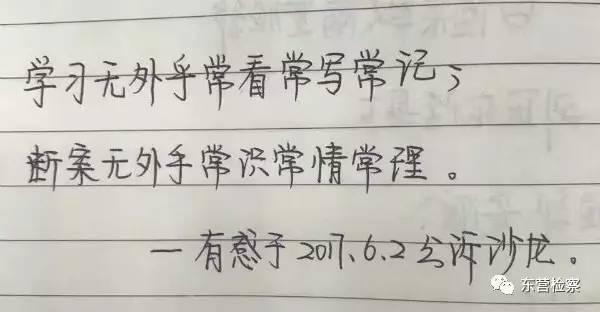 学习无外乎常看常写常记；
断案无外乎常识常情常理。
一有惑于2017.6.2公诉沙龙。
东营检察